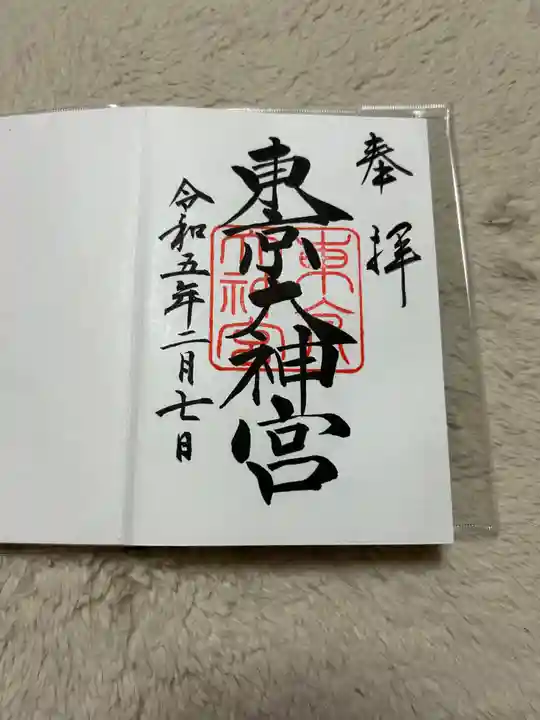 奉拝
東京大神宮
令和五年二月七日
東京大神宮